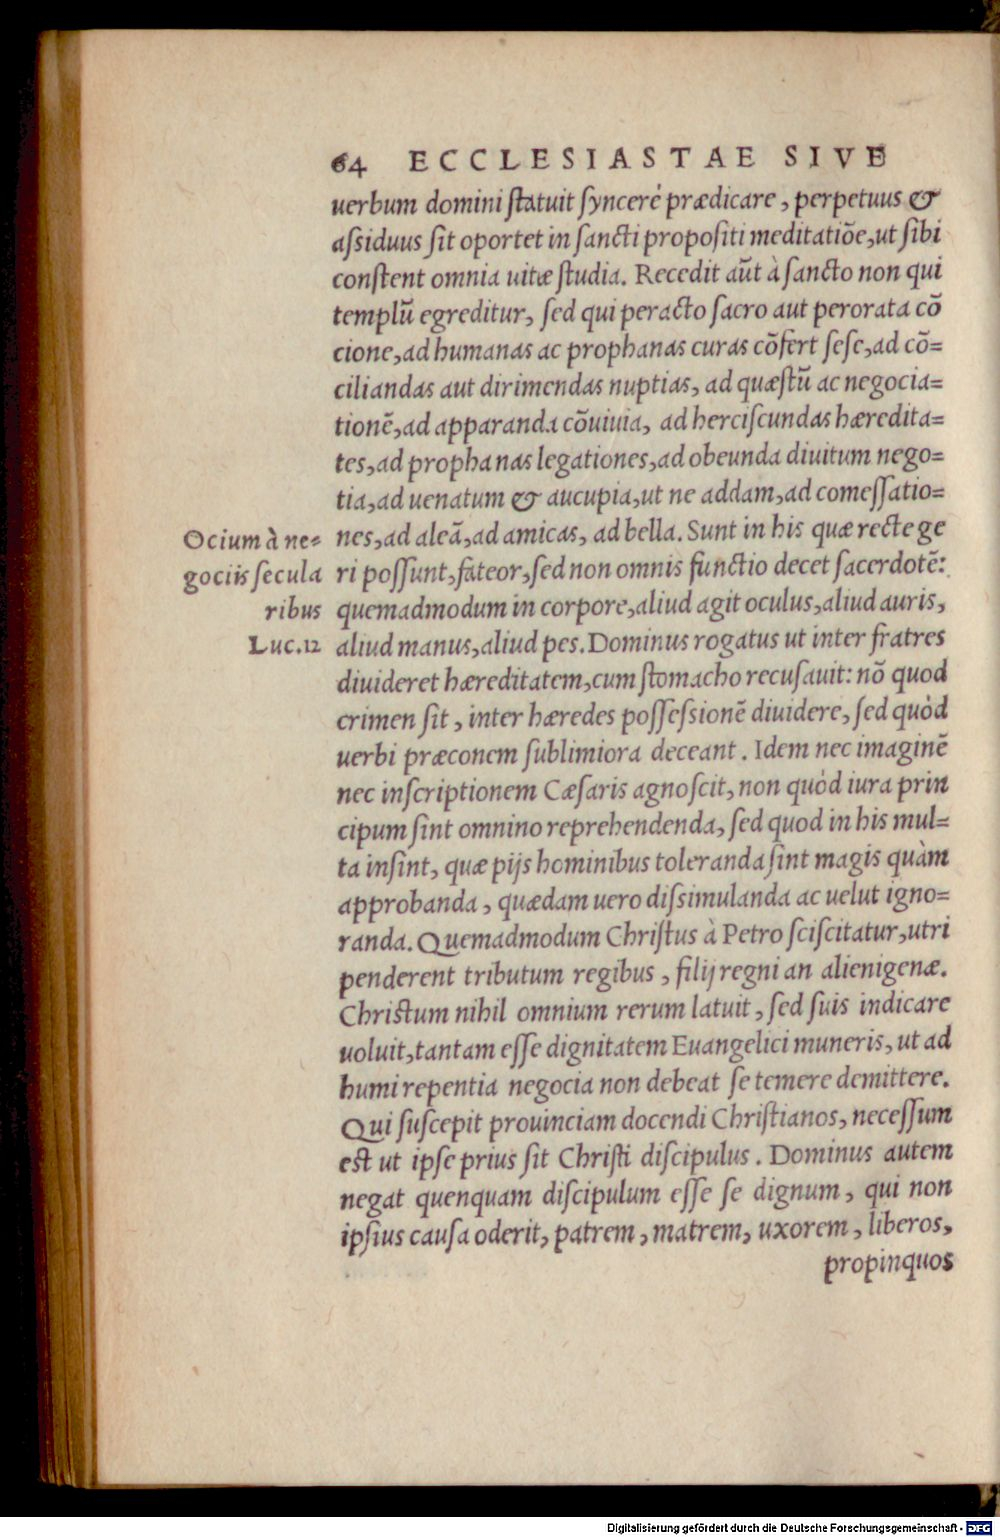 64 ECCLESIASTAE SIVE
uerbum domini statuit syncerè prædicare, perpetuus &
assiduus sit oportet in sancti propositi meditatiõe, ut sibi
constent omnia uitæ studia. Recedit aũt à sancto non qui
templũ egreditur, sed qui peracto sacro aut perorata cõ
cione, ad humanas ac prophanas curas cõfert sese, ad cõ=
ciliandas aut dirimendas nuptias, ad quæstũ ac negocia=
tionẽ, ad apparanda cõuiuia, ad herciscundas hæredita=
tes, ad prophanas legationes, ad obeunda diuitum nego=
tia, ad uenatum & aucupia, ut ne addam, ad comessatio=
nes, ad aleã, ad amicas, ad bella. Sunt in his quæ recte ge
ri possunt, fateor, sed non omnis functio decet sacerdotẽ:
quemadmodum in corpore, aliud agit oculus, aliud auris,
aliud manus, aliud pes. Dominus rogatus ut inter fratres
diuideret hæreditatem, cum stomacho recusauit: nõ quod
crimen sit, inter hæredes possessionẽ diuidere, sed quòd
uerbi præconem sublimiora deceant. Idem nec imaginẽ
nec inscriptionem Cæsaris agnoscit, non quòd iura prin
cipum sint omnino reprehendenda, sed quod in his mul=
ta insint, quæ pijs hominibus toleranda sint magis quàm
approbanda, quædam uero dissimulanda ac uelut igno=
randa. Quemadmodum Christus à Petro sciscitatur, utri
penderent tributum regibus, filij regni an alienigenæ.
Christum nihil omnium rerum latuit, sed suis indicare
uoluit, tantam esse dignitatem Euangelici muneris, ut ad
humi repentia negocia non debeat se temere demittere.
Qui suscepit prouinciam docendi Christianos, necessum
est ut ipse prius sit Christi discipulus. Dominus autem
negat quenquam discipulum esse se dignum, qui non
ipsius causa oderit, patrem, matrem, uxorem, liberos,
propinquos
Ocium à ne=
gociis secula
ribus
Luc.12
Digitalisierung gefördert durch die Deutsche Forschungsgemeinschaft - DFG